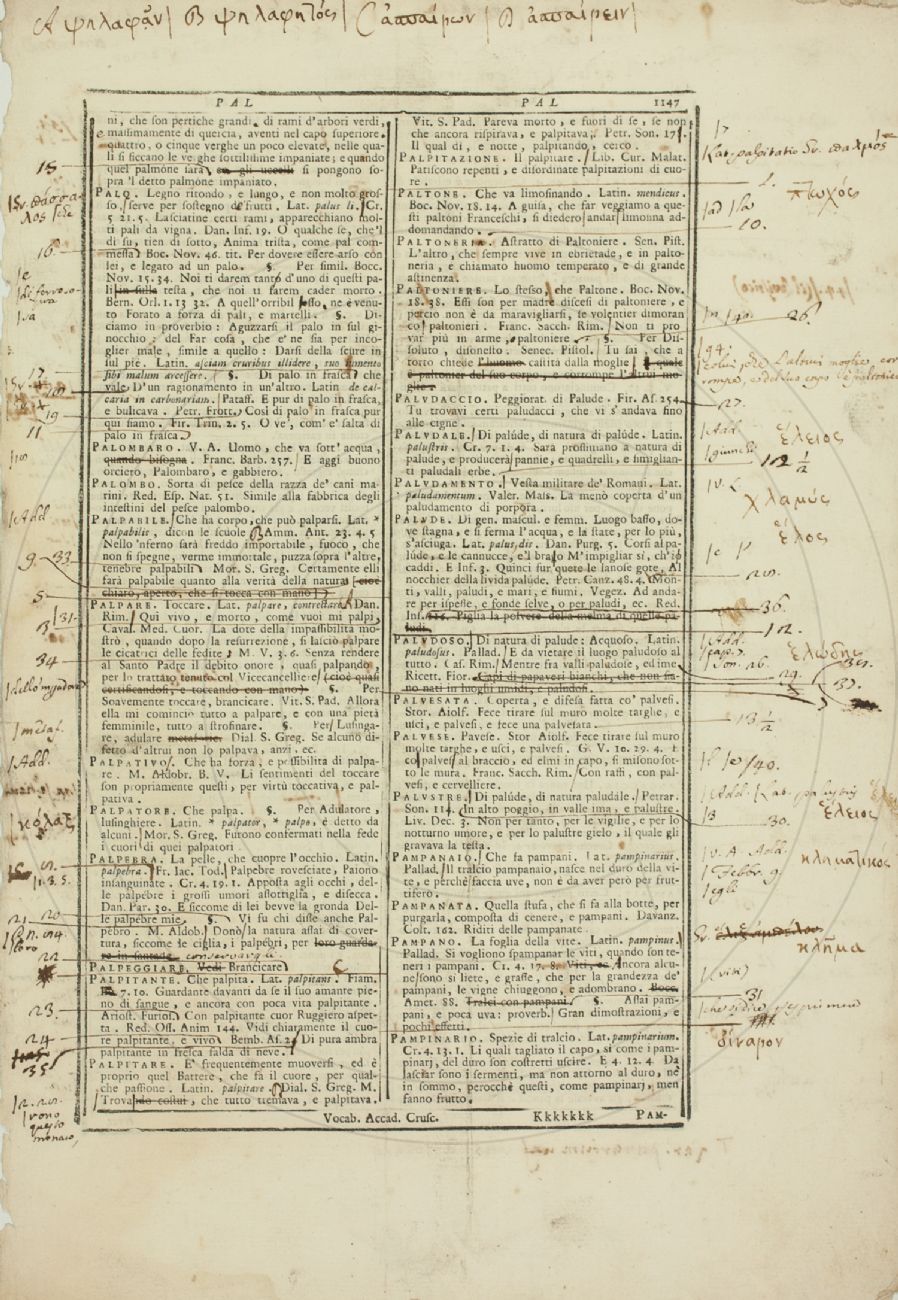 A ψηλαφᾷν| B ψηλαφητός| C ἀσπαίρων| D ἀσπαίρειν|
PAL PAL 1147
ni, che ſon pertiche grandi, di rami d'arbori verdi,
maſſimamente di quercia, aventi nel capo ſuperiore
quattro, o cinque verghe un poco elevate, nelle qua-
li ſi ficcano le verghe ſottiliſſime impaniate; e quando
quel palmone ſarà en gli uccelli ſi pongono ſo-
pra 'l detto palmone impaniato.
PALO. Legno ritondo, e lungo, e non molto groſ-
ſo, ſerve per ſoſtegno de' frutti. Lat. palus li. Cr.
5 21. 5. Laſciatine certi rami, apparecchiano mol-
ti pali da vigna. Dan. Inf. 19. O qualche ſe, che 'l
di ſu, tien di ſotto, Anima triſta, come pal com-
meſſa. Boc. Nov. 46. tit. Per dovere eſſere arſo con
lei, e legato ad un palo. §. Per ſimil. Bocc.
Nov. 15. 34. Noi ti darem tanto d'uno di queſti pa-
li in ſulla teſta, che noi ti farem cader morto.
Bern. Orl. 1. 13 32. A quell'orribil ſeſſo, ne è venu-
to Forato a forza di pali, e martelli. §. Di-
ciamo in proverbio: Aguzzarſi il palo in ſul gi-
nocchio: del Far coſa, che e' ne ſia per inco-
glier male, ſimile a quello: Darſi della ſcure in
ſul piè. Latin. aſciam cruribus illidere, ſuo jumento
ſibi malum arceſſere. §. Di palo in fraſca che
vale, D'un ragionamento in un'altro. Latin de cal-
caria in carbonariam. Pataff. E pur di palo in fraſca,
e bulicava. Petr. Frott. Così di palo in fraſca pur
qui ſiamo. Fir. Trin. 2. 5. O ve', com' e' ſalta di
palo in fraſca.
PALOMBARO. V. A. Uomo, che va ſott' acqua,
quando biſogna. Franc. Barb. 257. E aggi buono
orciero, Palombaro, e gabbiero.
PALOMBO. Sorta di peſce della razza de' cani ma-
rini. Red. Eſp. Nat. 51. Simile alla fabbrica degli
inteſtini del peſce palombo.
PALPABILE. Che ha corpo, che può palparſi. Lat. *
palpabilis, dicon le ſcuole Amm. Ant. 23. 4. 5
Nello 'nferno ſarà freddo importabile, fuoco, che
non ſi ſpegne, verme immortale, puzza ſopra l'altre,
tenebre palpabili Mor. S. Greg. Certamente elli
ſarà palpabile quanto alla verità della natura (cioè
chiaro, aperto, che ſi tocca con mano)
PALPARE. Toccare. Lat. palpare, contrectare Dan.
Rim. Qui vivo, e morto, come vuoi mi palpi,
Caval. Med. Cuor. La dote della impaſſibilità mo-
ſtrò, quando dopo la reſurrezione, ſi laſciò palpare
le cicatrici delle fedite. M. V. 3. 6. Senza rendere
al Santo Padre il debito onore, quaſi palpando,
per lo trattato tenuto col Vicecancelliere (cioè quaſi
certificandoſi, e toccando con mano) §. Per
Soavemente toccare, brancicare. Vit. S. Pad. Allora
ella mi cominciò tutto a palpare, e con una pietà
femminile, tutto a ſtrofinare. §. Per Luſinga-
re, adulare metaf. ne. Dial. S. Greg. Se alcuno di-
fetto d'altrui non lo palpava, anzi. ec.
PALPATIVO. Che ha forza, e poſſibilità di palpa-
re. M. Aldobr. B. V. Li ſentimenti del toccare
ſon propriamente queſti, per virtù toccativa, e pal-
pativa.
PALPATORE. Che palpa. §. Per Adulatore,
luſinghiere. Latin. * palpator, * palpo, è detto da
alcuni. Mor. S. Greg. Furono confermati nella fede
i cuori di quei palpatori
PALPEBRA. La pelle, che cuopre l'occhio. Latin.
palpebra. Fr. Iac. Tod. Palpebre roveſciate, Paiono
inſanguinate. Cr. 4. 19. 1. Appoſta agli occhi, del-
le palpebre i groſſi umori aſſottiglia, e diſecca.
Dan. Par. 30. E ſiccome di lei bevve la gronda Del-
le palpebre mie. §. Vi fu chi diſſe anche Pal-
pebro. M. Aldob. Donò la natura aſſai di cover-
tura, ſiccome le ciglia, i palpebri, per loro guarda-
re in ſantade.
PALPEGGIARE. Vedi Brancicare
PALPITANTE. Che palpita. Lat. palpitans. Fiam.
7. 10. Guardante davanti da ſe il ſuo amante pie-
no di ſangue, e ancora con poca vita palpitante.
Arioſt. Furioſ. Con palpitante cuor Ruggiero aſpet-
ta. Red. Oſſ. Anim 144. Vidi chiaramente il cuo-
re palpitante, e vivo Bemb. Aſ. 2. Di pura ambra
palpitante in freſca falda di neve.
PALPITARE. E' frequentemente muoverſi, ed è
proprio quel Battere, che fa il cuore, per qual-
che paſſione. Latin. palpitare. Dial. S. Greg. M.
Trovando coſtui, che tutto tremava, e palpitava.
Vit. S. Pad. Pareva morto, e fuori di ſe, ſe non
che ancora riſpirava, e palpitava. Petr. Son. 17.
Il qual dì, e notte, palpitando, cerco.
PALPITAZIONE. Il palpitare. Lib. Cur. Malat.
Patiſcono repenti, e diſordinate palpitazioni di cuo-
re.
PALTONE. Che va limoſinando. Latin. mendicus.
Boc. Nov. 18. 14. A guiſa, che far veggiamo a que-
ſti paltoni Franceſchi, ſi diedero andar limonna ad-
domandando.
PALTONERIA. Aſtratto di Paltoniere. Sen. Piſt.
L'altro, che ſempre vive in ebrietade, e in palto-
neria, e chiamato huomo temperato, e di grande
aſtinenza.
PALTONIERE. Lo ſteſſo, che Paltone. Boc. Nov.
18. 38. Eſſi ſon per madre diſceſi di paltoniere, e
perciò non è da maravigliarſi, ſe volentier dimoran
co' paltonieri. Franc. Sacch. Rim. Non ti pro
var più in arme, e paltoniere §. Per Diſ-
ſoluto, diſoneſto. Senec. Piſtol. Tu ſai, che a
torto chiede l'huomo caſtità dalla moglie il quale
è paltonier del ſuo corpo, e corrompe l'altrui mo-
glie.
PALVDACCIO. Peggiorat. di Palude. Fir. Aſ. 254.
Tu trovavi certi paludacci, che vi s'andava fino
alle cigne.
PALVDALE. Di palúde, di natura di palúde. Latin.
paluſtris. Cr. 7. 1. 4. Sarà proſſimano a natura di
palude, e producerà pannie, e quadrelli, e ſimiglian-
ti paludali erbe.
PALVDAMENTO. Veſta militare de' Romani. Lat.
paludamentum. Valer. Maſs. La menò coperta d'un
paludamento di porpora.
PALVDE. Di gen. maſcul. e femm. Luogo baſſo, do-
ve ſtagna, e ſi ferma l'acqua, e la ſtate, per lo più,
s'aſciuga. Lat. palus, dis. Dan. Purg. 5. Corſi al pa-
lúde, e le cannucce, e'l brago M'impigliar sì, ch'io
caddi. E Inf. 3. Quinci fur quete le lanoſe gote, Al
nocchier della livida palude. Petr. Canz. 48. 4. Mon-
ti, valli, paludi, e mari, e fiumi. Vegez. Ad anda-
re per iſpeſſe, e fonde ſelve, o per paludi, ec. Red.
Inſ. 116. Piglia la polvere della melma di quelle pa-
ludi.
PALUDOSO. Di natura di palude: Acquoſo. Latin.
paludoſus. Pallad. E da vietare il luogo paludoſo al
tutto. Caſ. Rim. Mentre fra valli paludoſe, ed ime
Ricett. Fior. Capi di papaveri bianchi, che non ſia-
no nati in luoghi umidi, e paludoſi.
PALVESATA. Coperta, e difeſa fatta co' palveſi.
Stor. Aiolf. Fece tirare ſul muro molte targhe, e
uſci, e palveſi, e fece una palveſata.
PALVESE. Paveſe. Stor Aiolf. Fece tirare ſul muro
molte targhe, e uſci, e palveſi. G. V. 10. 29. 4. E
co' palveſi al braccio, ed elmi in capo, ſi miſono ſot-
to le mura. Franc. Sacch. Rim. Con raffi, con pal-
veſi, e cervelliere.
PALVSTRE. Di palúde, di natura palúdale. Petrar.
Son. 114. In alto poggio, in valle ima, e paluſtre.
Liv. Dec. 3. Non per tanto, per le vigilie, e per lo
notturno umore, e per lo paluſtre gielo, il quale gli
gravava la teſta.
PAMPANAIO. Che fa pampani. Lat. pampinarius.
Pallad. Il tralcio pampanaio, naſce nel duro della vi-
te, e perchè faccia uve, non è da aver però per frut-
tifero.
PAMPANATA. Quella ſtufa, che ſi fa alla botte, per
purgarla, compoſta di cenere, e pampani. Davanz.
Colt. 162. Riditi delle pampanate.
PAMPANO. La foglia della vite. Latin. pampinus.
Pallad. Si vogliono ſpampanar le viti, quando ſon te-
neri i pampani. Cr. 4. 17. 8. Viti, ec. Ancora alcu-
ne ſono sì liete, e graſſe, che per la grandezza de'
pampani, le vigne chiuggono, e adombrano. Bocc.
Amet. 88. Tralci con pampani. §. Aſſai pam-
pani, e poca uva: proverb. Gran dimoſtrazioni, e
pochi effetti.
PAMPINARIO. Spezie di tralcio. Lat. pampinarium.
Cr. 4. 13. 1. Li quali tagliato il capo, sì come i pam-
pinarj, del duro ſon coſtretti uſcire. E 4. 12. 4 Da
laſciar ſono i ſermenti, ma non attorno al duro, nè
in ſommo, perocchè queſti, come pampinarj, men
fanno frutto.
Vocab. Accad. Cruſc. Kkkkkkk PAM-
15
16
17
19
11
Add
9. 33
5
31
34
metaf.
Add.
κόλαξ
21 20
22
23.
24
35
πτωχός
10.
26.
27.
Add. ἕλειος
12 ½
χλαμύς
ἕλος
36.
12.
ἑλώδης
29.
13 ½
40.
Add. ἕλειος
30.
V. A Add. κληματικός
κλῆμα
31
οἴναρον